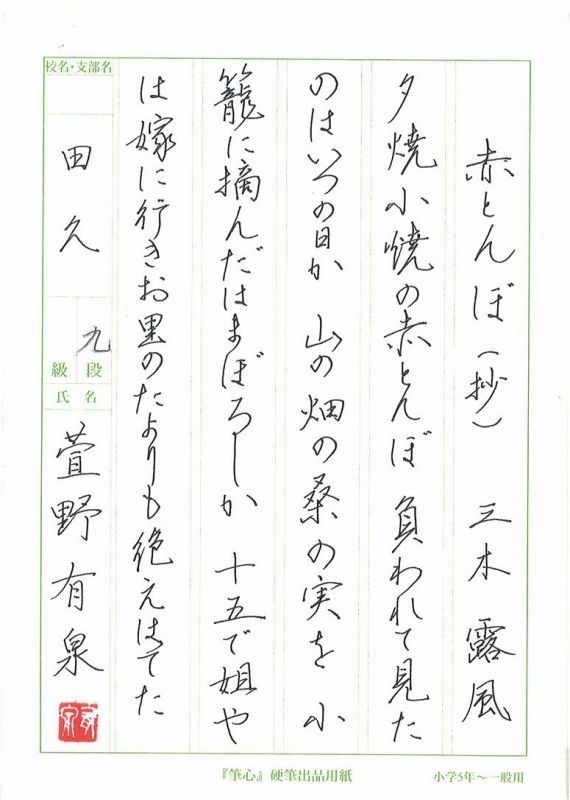 赤とんぼ(抄) 三木露風
夕焼小焼の赤とんぼ 負われて見た
のはいつの日か 山の畑の桑の実を 小
籠に摘んだはまぼろしか 十五で姐や
は嫁に行きお里のたよりも絶えはてた
校名・支部名
田久
九
級 段
氏名
萱野有泉
『筆心』硬筆出品用紙
小学5年〜一般用